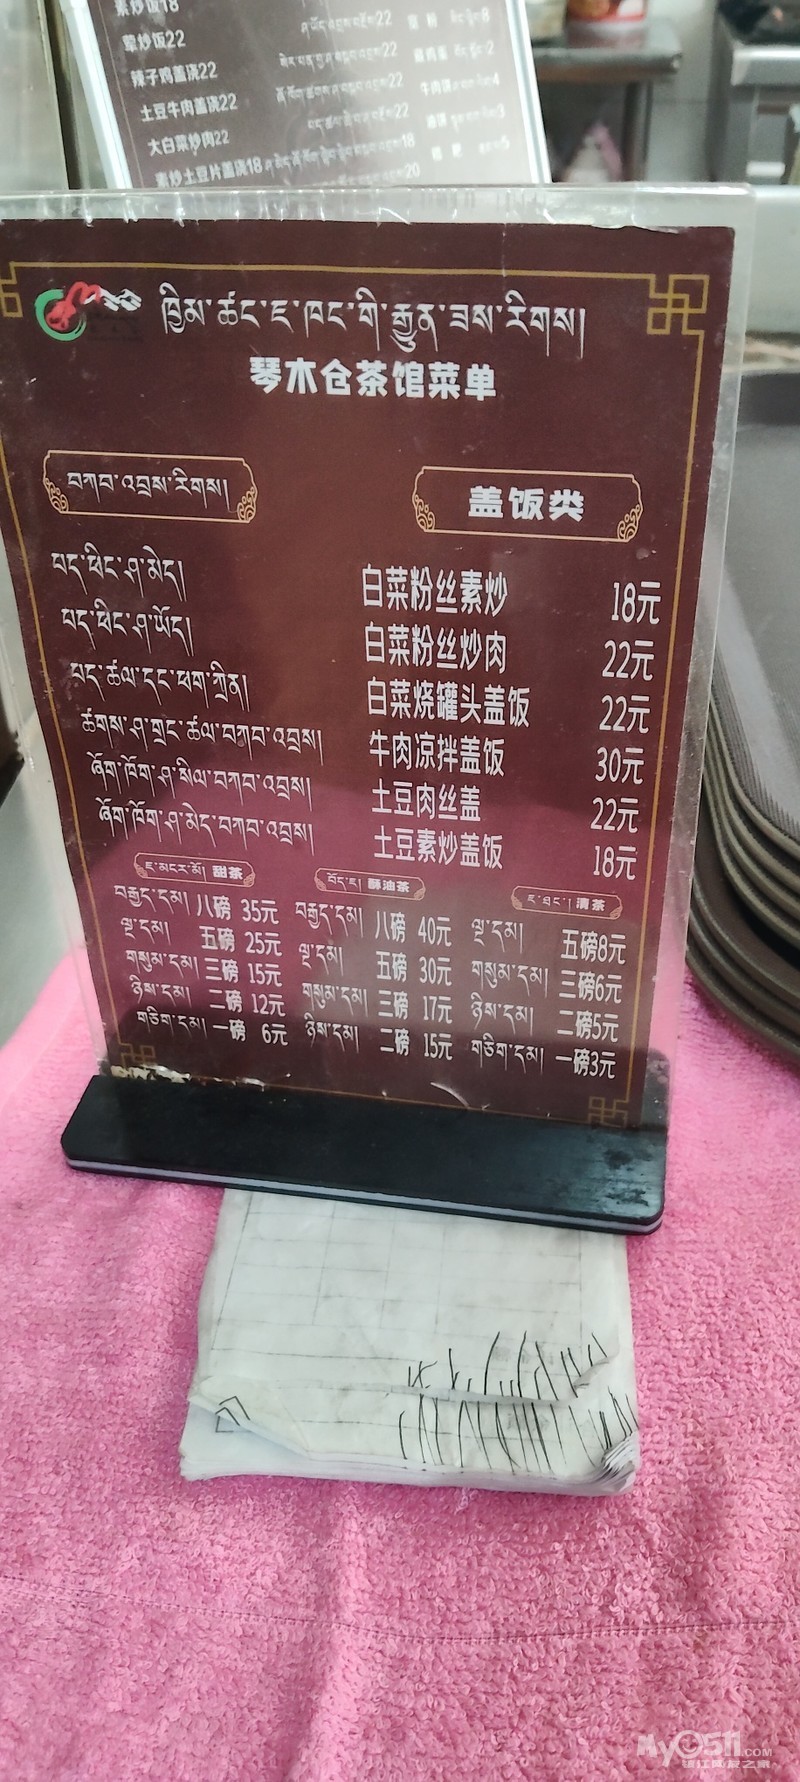 素炒饭18
荤炒饭22
辣子鸡盖浇22
土豆牛肉盖浇22
大白菜炒肉22
素炒土豆片盖浇18
ཁྱིམ་ཚང་ཇ་ཁང་གི་རྒྱུན་ཟས་རིགས།
琴木仓茶馆菜单
བཀབ་འབྲས་རིགས། 盖饭类
པད་ཕིང་ཤ་མེད། 白菜粉丝素炒 18元
པད་ཕིང་ཤ་ཡོད། 白菜粉丝炒肉 22元
པད་ཚལ་དང་ཕག་ཀྲིན། 白菜烧罐头盖饭 22元
ཚགས་ཤ་གྲང་ཚལ་བཀབ་འབྲས། 牛肉凉拌盖饭 30元
ཞོག་ཁོག་ཤ་སིལ་བཀབ་འབྲས། 土豆肉丝盖 22元
ཞོག་ཁོག་ཤ་མེད་བཀབ་འབྲས། 土豆素炒盖饭 18元
ཇ་མངར་མོ། 甜茶 བོད་ཇ། 酥油茶 ཇ་ཐང་། 清茶
བརྒྱད་དམ། 八磅 35元 བརྒྱད་དམ། 八磅 40元 ལྔ་དམ། 五磅8元
ལྔ་དམ། 五磅 25元 ལྔ་དམ། 五磅 30元 གསུམ་དམ། 三磅6元
གསུམ་དམ། 三磅 15元 གསུམ་དམ། 三磅 17元 ཉིས་དམ། 二磅5元
ཉིས་དམ། 二磅 12元 ཉིས་དམ། 二磅 15元 གཅིག་དམ། 一磅3元
གཅིག་དམ། 一磅 6元
MY0511.COM
镇江网友之家